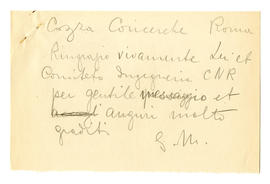 Cozza Concerte Roma
Ringrazio vivamente Lei et
Comitato Ingegneria CNR
per gentile messaggio et
auguri molto
graditi
G. M.